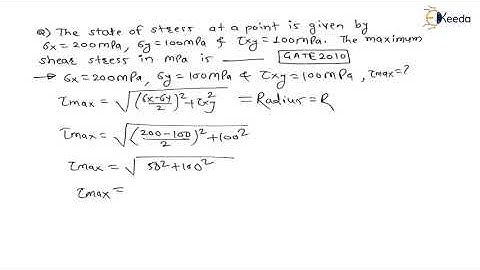 Ekeeda
Q) The state of stress at a point is given by
σx = 200mPa, σy = 100mPa & τxy = 100mPa. The maximum
shear stress in mPa is ______ GATE2010
→ σx = 200mPa, σy = 100mPa & τxy = 100mPa, τmax = ?
τmax = √((σx-σy/2)² + τxy²) = Radius = R
τmax = √((200-100/2)² + 100²)
τmax = √50² + 100²
τmax =